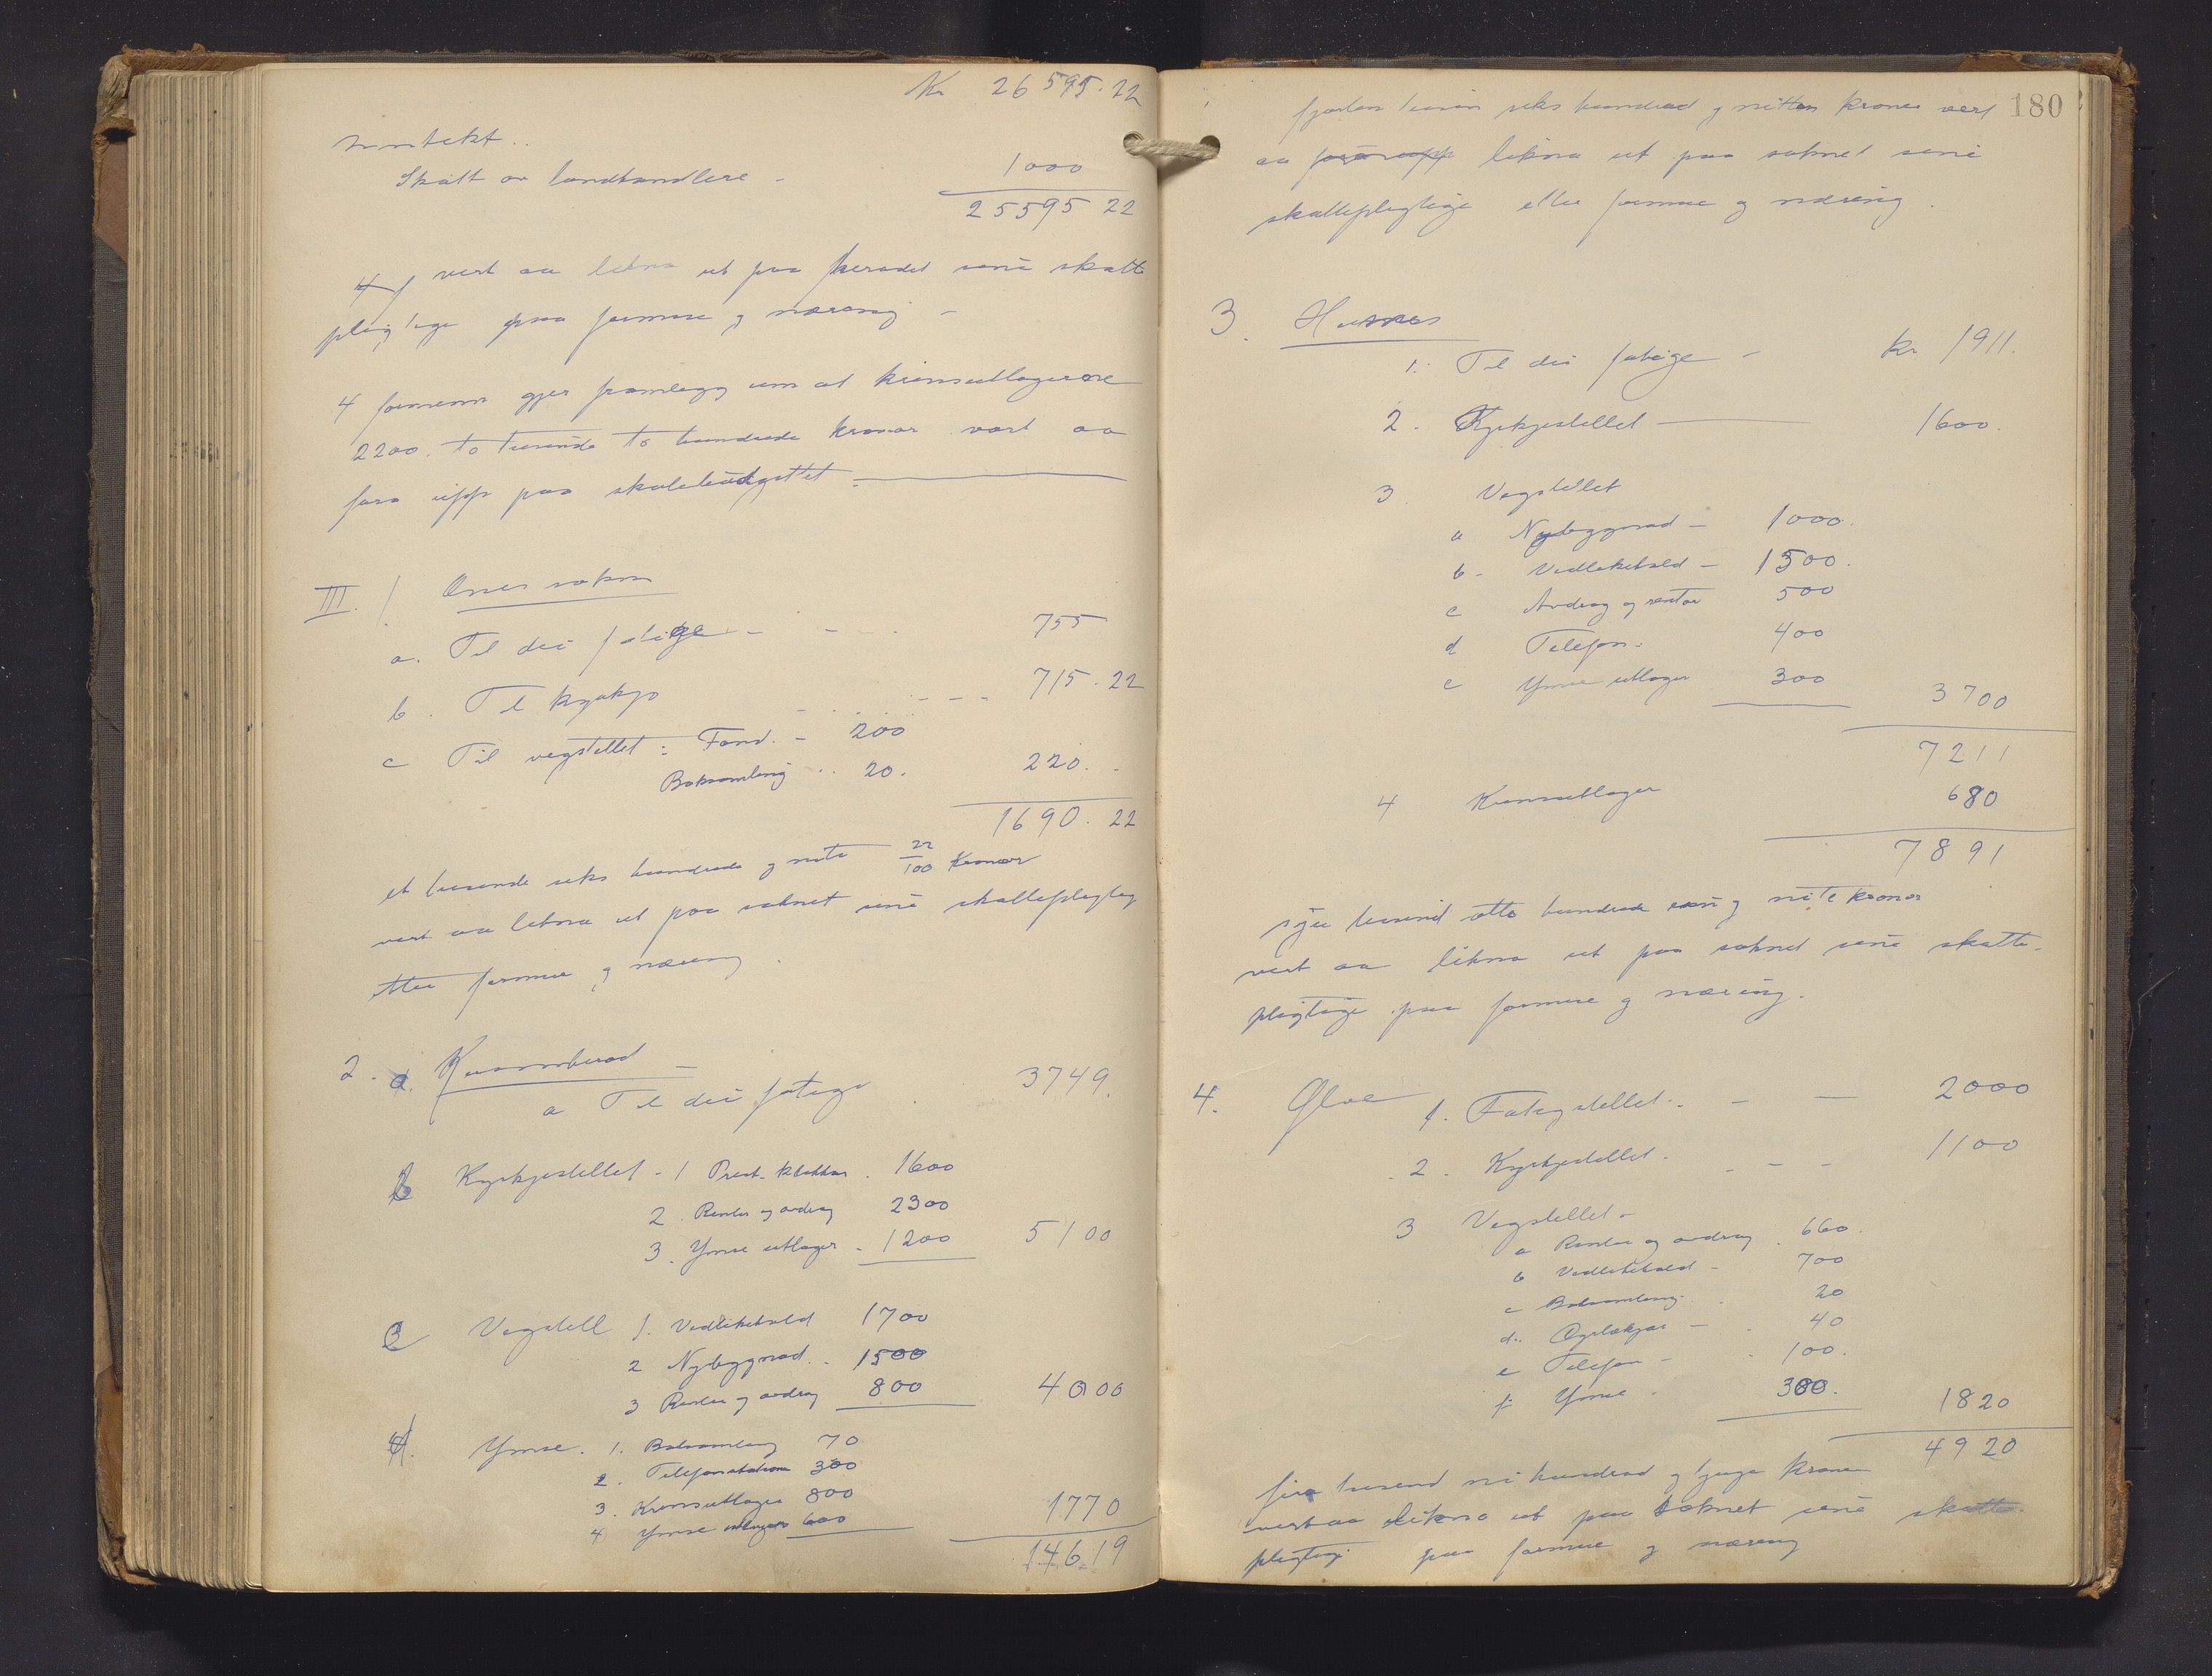 Kr 26595.22
Inntekt..
Skatt av landhandlere - 1000
25595 22
vert aa likna ut paa heradet sine skatt
plegtige paa formue og næring -
4 formenn gjer framlegg um at krinsutlagerne
2200. to tusende to hundrede kronor vert aa
føra upp paa skulebudgettet.
III. 1 Ænes sokn
a. Til dei fatige - - - 755
b. Til kyrkja - - - 715.22
c Til vegstellet: Fond. - 200
Boksamling .. 20. 220. -
1690.22
et tusende seks hundrede og nitti 22/100 Kronor
vert aa likna ut paa soknet sine skatteplegtige
etter formue og næring.
2. Kvinnherad
a Til dei fatige 3749.
b Kyrkjestellet - 1 Prest. klokkar. 1600
2. Renter og avdrag 2300
3. Ymse utlagor - 1200 5100
c Vegstell 1. Vedlikehald 1700
2 Nybyggnad. . 1500
3 Renter og avdrag 800 4000
Ymse. 1. Boksamling 70
2. Telefonstation 300
3. Krinsutlagor 800
4 Ymse utlagor 600 1770
14619
180
fjortan tusin seks hundrad og nitten kroner vert
aa likna ut paa soknet sine
skatteplegtige etter formue og næring.
3. Husnes
1. Til dei fatige - kr 1911.
2. Kyrkjestellet 1600.
3 Vegstellet
a Nybyggnad - 1000.
b - Vedlikehald - 1500.
c Avdrag og rentor 500
d Telefon. 400
e Ymse utlagor 300 3700
7211
4 Krinsutlagor 680
7891
sju tusind otte hundrede ein og niti kronor
vert aa likna ut paa soknet sine skatte-
plegtige paa formue og næring.
4. Ølve 1. Fatigstellet. - - 2000
2. Kyrkjestellet. - - - 1100
3 Vegstellet -
a Renter og avdrag . 660.
b Vedlikehald - 700
c Boksamling. 20
d.. - . 40
e Telefon - . 100.
f Ymse . 300. 1820
4920
fire tusend ni hundrad og tjuge kroner
vert aa likna ut paa soknet sine skatte-
plegtige paa formue og næring